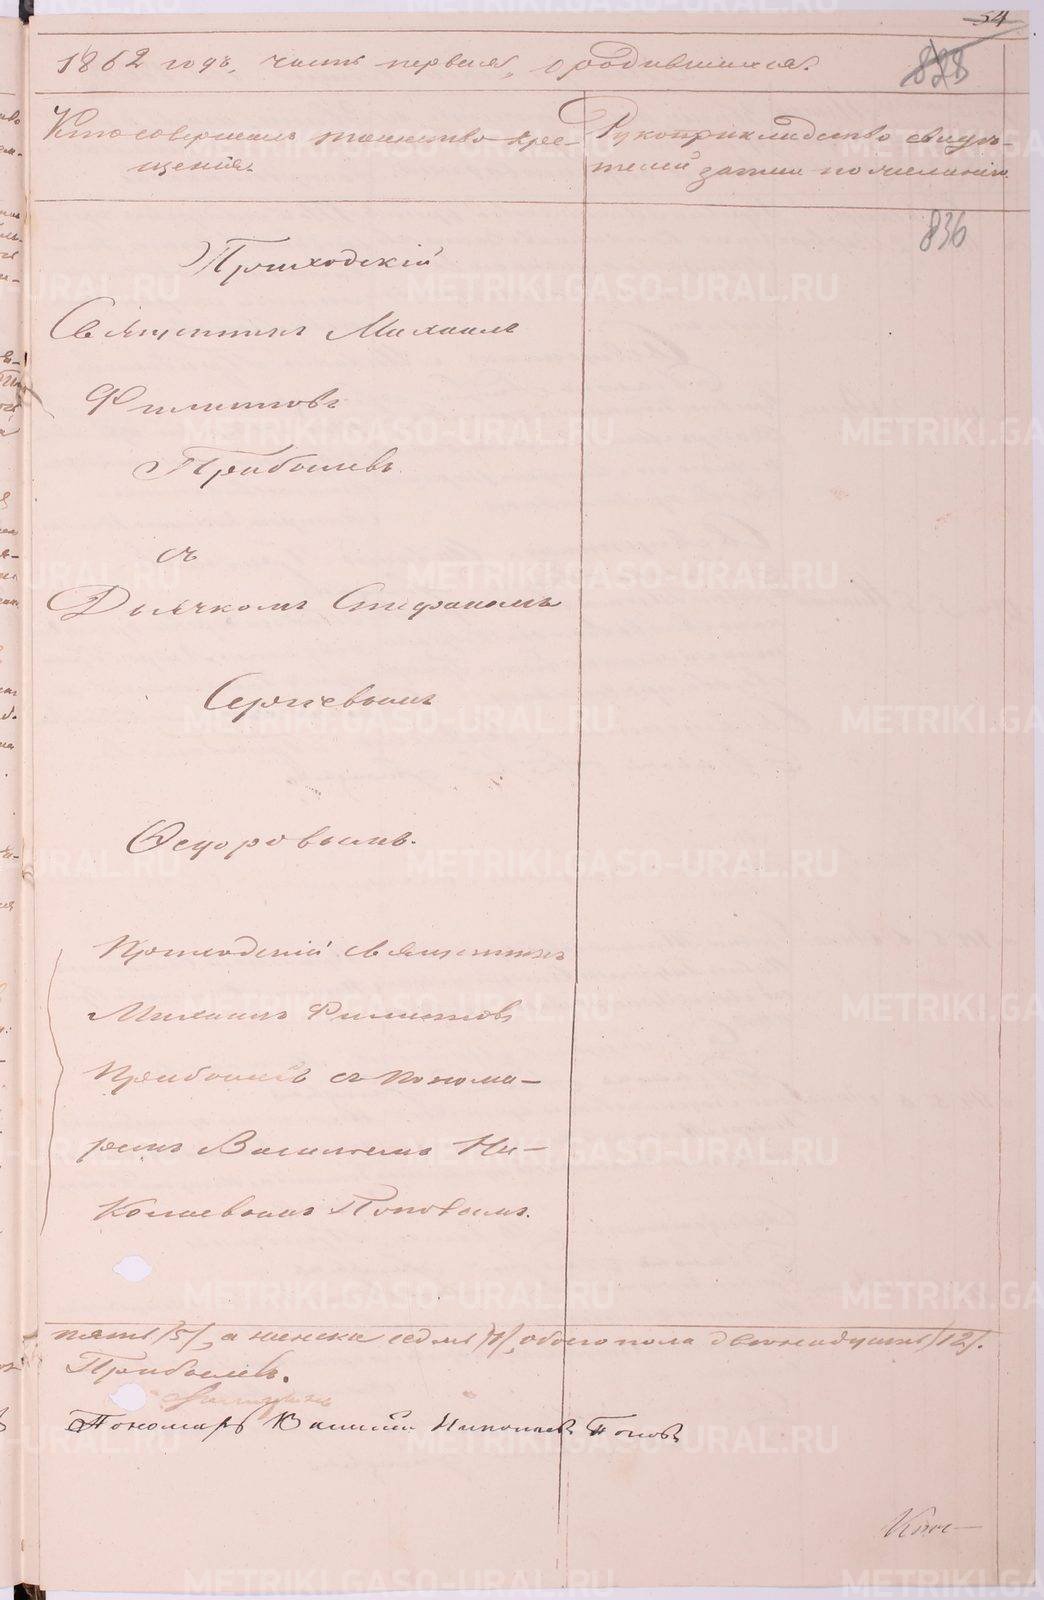 54
1862 годъ, часть первая, о родившихся.
828
Кто совершалъ таинство кре-
щенія.
Рукоприкладство свидѣ-
телей записи по желанію
836
Приходскій
Священникъ Михаилъ
Филиппов
Прибылевъ
съ
Дьячкомъ Стефаномъ
Сергіевымъ
Ѳедоровымъ.
Приходскій Священникъ
Михаилъ Филиппов
Прибылевъ съ Понома-
ремъ Василіемъ Ни-
колаевымъ Поповымъ.
пять /5/, а женска седмь /7/, обоего пола двенадцать /12/.
Прибылевъ.
Пономарь Василій Николаевъ Поповъ
METRIKI.GASO-URAL.RU